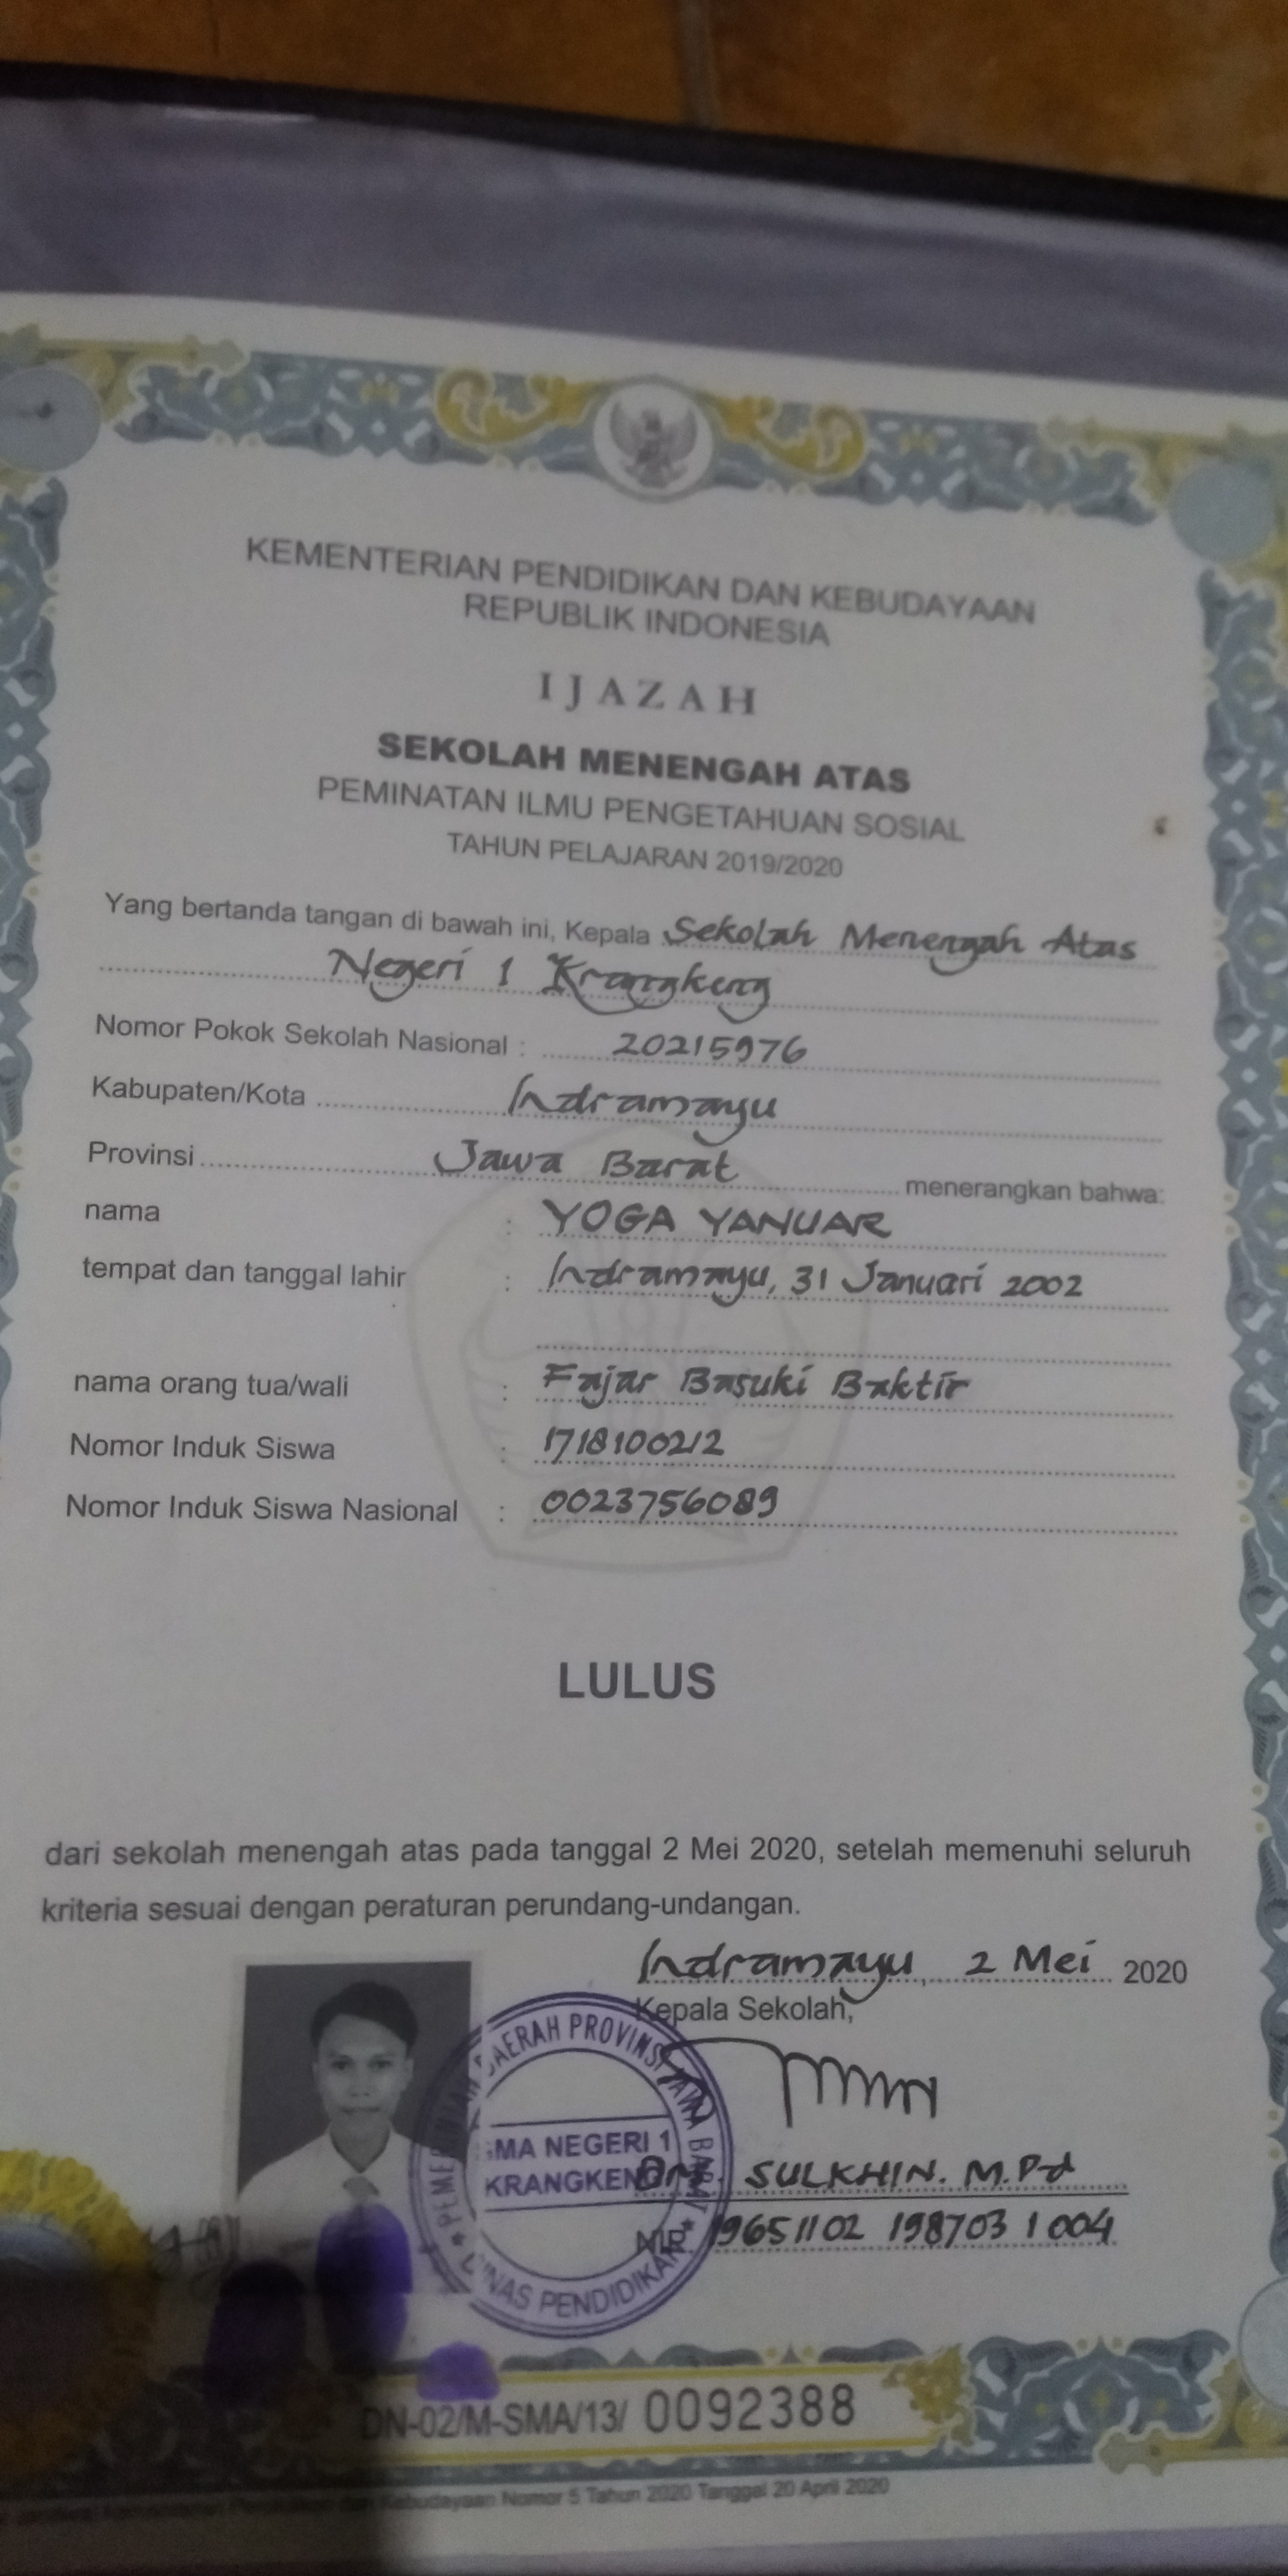 KEMENTERIAN PENDIDIKAN DAN KEBUDAYAAN
REPUBLIK INDONESIA
IJAZAH
SEKOLAH MENENGAH ATAS
PEMINATAN ILMU PENGETAHUAN SOSIAL
TAHUN PELAJARAN 2019/2020
Yang bertanda tangan di bawah ini, Kepala Sekolah Menengah Atas
Negeri 1 Krangkeng
Nomor Pokok Sekolah Nasional : 20215976
Kabupaten/Kota Indramayu
Provinsi Jawa Barat menerangkan bahwa:
nama : YOGA YANUAR
tempat dan tanggal lahir : Indramayu, 31 Januari 2002
nama orang tua/wali : Fajar Basuki Baktir
Nomor Induk Siswa : 1718100212
Nomor Induk Siswa Nasional : 0023756089
LULUS
dari sekolah menengah atas pada tanggal 2 Mei 2020, setelah memenuhi seluruh
kriteria sesuai dengan peraturan perundang-undangan.
Indramayu, 2 Mei 2020
Kepala Sekolah,
DAERAH PROVINSI JAWA BARAT
SMA NEGERI 1
KRANGKENG
DINAS PENDIDIKAN
SULKHIN. M.Pd
NIP. 19651102 198703 1 004
DN-02/M-SMA/13/ 0092388
Kebudayaan Nomor 5 Tahun 2020 Tanggal 20 April 2020